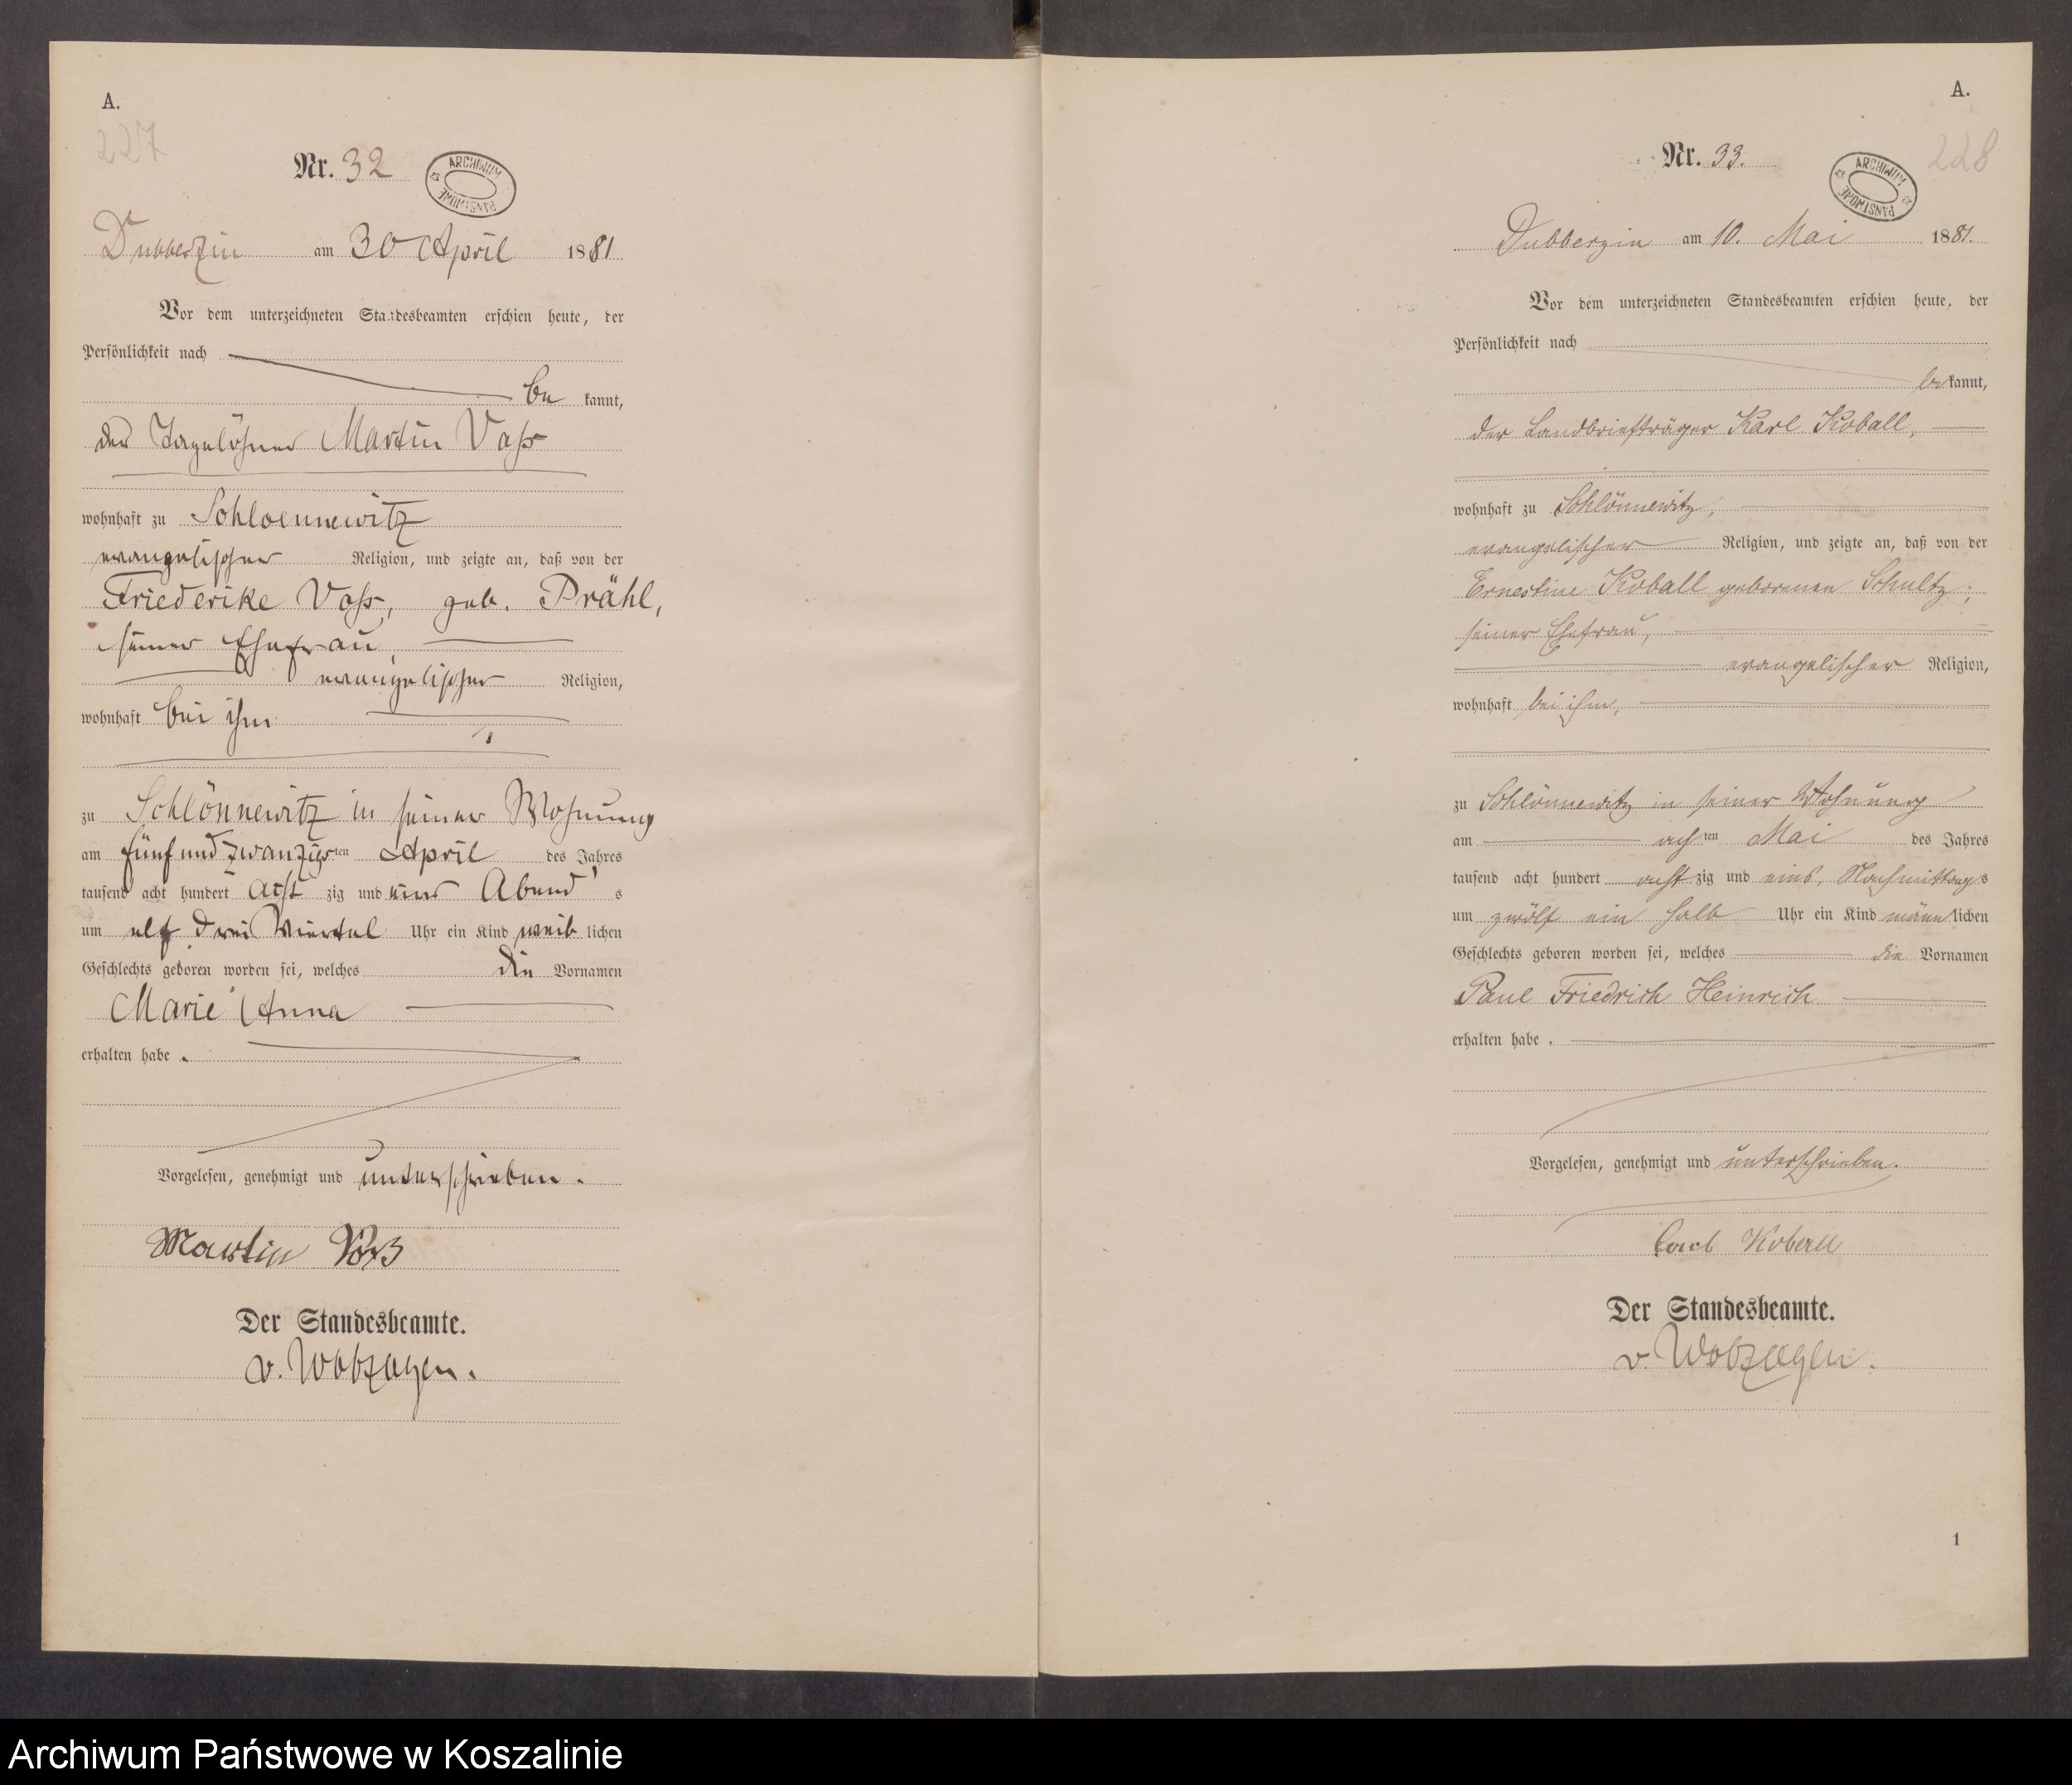 A.
227
Nr. 32
ARCHIWUM PAŃSTWOWE
Dubberzin am 30 April 1881
Vor dem unterzeichneten Standesbeamten erschien heute, der
Persönlichkeit nach
be kannt,
der Tagelöhner Martin Voß
wohnhaft zu Schloennewitz
evangelischer Religion, und zeigte an, daß von der
Friederike Voß, geb. Prähl,
seiner Ehefrau,
evangelischer Religion,
wohnhaft bei ihm
zu Schlönnewitz in seiner Wohnung
am fünf und zwanzigsten April des Jahres
tausend acht hundert acht zig und eins Abend s
um elf drei Viertel Uhr ein Kind weib lichen
Geschlechts geboren worden sei, welches die Vornamen
Marie Anna
erhalten habe.
Vorgelesen, genehmigt und unterschrieben.
Martin Voß
Der Standesbeamte.
v. Wobzogen.
A.
228
Nr. 33.
ARCHIWUM PAŃSTWOWE
Dubberzin am 10. Mai 1881.
Vor dem unterzeichneten Standesbeamten erschien heute, der
Persönlichkeit nach
be kannt,
der Landbriefträger Karl Koball,
wohnhaft zu Schlönnewitz,
evangelischer Religion, und zeigte an, daß von der
Ernestine Koball geborenen Schultz,
seiner Ehefrau,
evangelischer Religion,
wohnhaft bei ihm,
zu Schlönnewitz in seiner Wohnung
am achten Mai des Jahres
tausend acht hundert acht zig und eins, Nachmittags
um zwölf ein halb Uhr ein Kind männlichen
Geschlechts geboren worden sei, welches die Vornamen
Paul Friedrich Heinrich
erhalten habe.
Vorgelesen, genehmigt und unterschrieben.
Carl Koball
Der Standesbeamte.
v. Wobzogen.
1
Archiwum Państwowe w Koszalinie